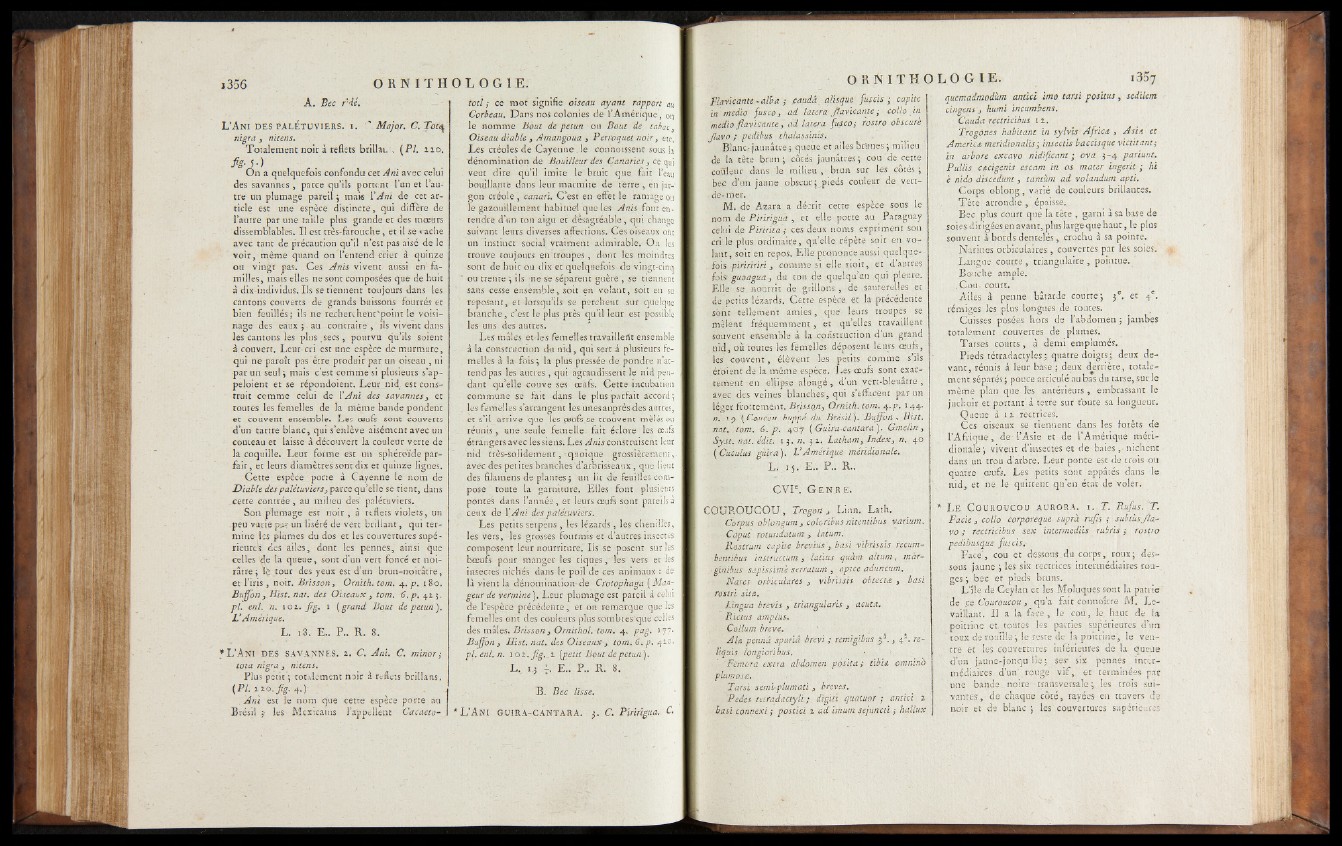 1356 ORNITHOLOGIE.
A. Bec ridé.
L'ANI DES PALÉTUVIERS. 1. Major. C. Tota
nigra, nitens.
Totalement noir à reflets brillans. (Pl. 220,
fig. 5.)
On a quelquefois confondu cet Ani avec celui
des savannes, parce qu'ils portent l'un et l'au-
tre un plumage pareil; mais l'Ani de cet ar-
ticle est une espèce distincte, qui diffère de
l'autre par une taille plus grande et des mœurs
dissemblables. Il est très-farouche, et il se cache
avec tant de précaution qu'il n'est pas aisé de le
voir, même quand on l'entend crier à quinze
ou vingt pas. Ces Anis vivent aussi en fa-
milles, mais elles ne sont composées que de huit
à dix individus. Ils se tiennent toujours dans les
cantons couverts de grands buissons fourrés et
bien feuillés; ils ne recherchent point le voisi-
nage des eaux; au contraire, ils vivent dans
les cantons les plus secs, pourvu qu'ils soient
à couvert. Leur cri est une espèce de murmure,
qui ne paroît pas être produit par un oiseau, ni
par un seul; mais c'est comme si plusieurs s'ap-
peloient et se répondoient. Leur nid est cons-
truit comme celui de l'Ani des savannes, et
toutes les femelles de la même bande pondent
et couvent ensemble. Les œufs sont couverts
d'un tartre blanc, qui s'enlève aisément avec un
couteau et laisse à découvert la couleur verte de
la coquille. Leur forme est un sphéroïde par-
fait, et leurs diamètres sont dix et quinze lignes.
Cette espèce porte à Cayenne le nom de
Diable des palétuviers, parce qu'elle se tient, dans
cette contrée, au milieu des palétuviers.
Son plumage est noir, à reflets violets, un
peu varié par un liséré de vert brillant, qui ter-
mine les plumes du dos et les couvertures supé-
rieures des ailes, dont les pennes, ainsi que
celles de la queue, sont d'un vert foncé et noi-
râtre; le tour des yeux est d'un brun-noirâtre,
et l'iris, noir. Brisson, Ornith. tom. 4. p. 180.
Buffon, Hist. nat. des Oiseaux, tom. 6. p. 423.
pl. enl. n. 102. fig. 1 (grand Bout de petun).
L'Amérique.
L. 18. E.. P.. R. 8.
* L'ANI DES SAVANNES. 2. C. Ani. C. minor;
tota nigra, nitens.
Plus petit; totalement noir à reflets brillans.
(Pl. 220. fig. 4.)
Ani est le nom que cette espèce porte au
Brésil; les Mexicains l'appellent Cacaeto-
totl; ce mot signifie oiseau ayant rapport au
Corbeau. Dans nos colonies de l'Amérique, on
le nomme Bout de petun ou Bout de tabac,
Oiseau diable, Amangoua, Perroquet noir, etc.
Les créoles de Cayenne le connoissent sous la
dénomination de Bouilleur des Canaries, ce qui
veut dire qu'il imite le bruit que fait l'eau
bouillante dans leur marmite de terre, en jar-
gon créole, canari. C'est en effet le ramage ou
le gazouillement habituel que les Anis font en-
tendre d'un ton aigu et désagréable, qui change
suivant leurs diverses affections. Ces oiseaux ont
un instinct social vraiment admirable. On les
trouve toujours en troupes, dont les moindres
sont de huit ou dix et quelquefois de vingt-cinq
ou trente; ils ne se séparent guère, se tiennent
sans cesse ensemble, soit en volant, soit en se
reposant, et lorsqu'ils se perchent sur quelque
branche, c'est le plus près qu'il leur est possible
les uns des autres.
Les mâles et les femelles travaillent ensemble
à la construction du nid, qui sert à plusieurs fe-
melles à la fois; la plus pressée de pondre n'at-
tend pas les autres, qui agrandissent le nid pen-
dant qu'elle couve ses œufs. Cette incubation
commune se fait dans le plus parfait accord;
les femelles s'arrangent les unes auprès des autres,
et s'il arrive que les œufs se trouvent mêlés ou
réunis, une seule femelle fait éclore les œufs
étrangers avec les siens. Les Anis construisent leur
nid très-solidement, quoique grossièrement,
avec des petites branches d'arbrisseaux, que lient
des filamens de plantes; un lit de feuilles com-
pose toute la garniture. Elles font plusieurs
pontes dans l'année, et leurs œufs sont pareils à
ceux de l'Ani des palétuviers.
Les petits serpens, les lézards, les chenilles,
les vers, les grosses fourmis et d'autres insectes
composent leur nourriture. Ils se posent sur les
bœufs pour manger les tiques, les vers et les
insectes nichés dans le poil de ces animaux : de
là vient la dénomination de Crotophaga (Man-
geur de vermine). Leur plumage est pareil à celui
de l'espèce précédente, et on remarque que les
femelles ont des couleurs plus sombres que celles
des mâles. Brisson, Ornithol. tom. 4. pag. 177.
Buffon, Hist. nat. des Oiseaux, tom. 6. p. 420.
pl. enl. n. 102. fig. 2 (petit Bout de petun).
L. 13 1/2. E.. P.. R. 8.
B. Bec lisse.
* L'ANI GUIRA-CANTARA. 3. C. Piririgua. C.
ORNITHOLOGIE. 1357
Flavicante-alba; caudâ alisque fuscis; capite
in medio fusco, ad latera flavicante; collo in
medio flavicante, ad latera fusco; rostro obscurè
flavo; pedibus thalassinis.
Blanc-jaunâtre; queue et ailes brunes; milieu
de la tête brun; côtés jaunâtres; cou de cette
couleur dans le milieu, brun sur les côtés;
bec d'un jaune obscur; pieds couleur de vert-
de-mer.
M. de Azara a décrit cette espèce sous le
nom de Piririgua, et elle porte au Paraguay
celui de Piririta; ces deux noms expriment son
cri le plus ordinaire, qu'elle répète soit en vo-
lant, soit en repos. Elle prononce aussi quelque-
fois piriririri, comme si elle rioit, et d'autres
fois guaagua, du ton de quelqu'un qui pleure.
Elle se nourrit de grillons, de sauterelles et
de petits lézards. Cette espèce et la précédente
sont tellement amies, que leurs troupes se
mêlent fréquemment, et qu'elles travaillent
souvent ensemble à la construction d'un grand
nid, où toutes les femelles déposent leurs œufs,
les couvent, élèvent les petits comme s'ils
étoient de la même espèce. Les œufs sont exac-
tement en ellipse alongé, d'un vert-bleuâtre,
avec des veines blanches, qui s'effacent par un
léger frottement. Brisson, Ornith. tom. 4. p. 144.
n. 19 (Coucou huppé du Brésil). Buffon, Hist.
nat. tom. 6. p. 407 (Guira-cantara). Gmelin,
Syst. nat. édit. 13. n. 32. Latham, Index, n. 40
(Cuculus guira). L'Amérique méridionale.
L. 15. E.. P.. R..
CVIe. GENRE.
COUROUCOU, Trogon, Linn. Lath.
Corpus oblongum, coloribus nitentibus varium.
Caput rotundatum, latum.
Rostrum capite brevius, basi vibrissis recum-
bentibus instructum, latius quàm altum, mar-
ginibus sæpissimè serratum, apice aduncum.
Nares orbiculares, vibrissis obtectæ, basi
rostri sitæ.
Lingua brevis, triangularis, acuta.
Rictus amplus.
Collum breve.
Ala pennâ spuriâ brevi; remigibus 3ª., 4ª. re-
liquis longioribus.
Femora extra abdomen posita; tibiæ omninò
plumosæ.
Tarsi semi-plumati, breves.
Pedes tetradactyli; digiti quatuor; antici 2
basi connexi; postici 2 ad imum sejuncti; hallux
quemadmodùm antici imo tarsi positus, sedilem
cingens, humi incumbens.
Cauda rectricibus 12.
Trogones habitant in sylvis Africæ, Asiæ et
Americæ meridionalis; insectis baccisque victitant;
in arbore excavo nidificant; ova 3-4 pariunt.
Pullis cæcigenis escam in os mater ingerit; hi
è nido discedunt, tantùm ad volandum apti.
Corps oblong, varié de couleurs brillantes.
Tête arrondie, épaisse.
Bec plus court que la tête, garni à sa base de
soies dirigées en avant, plus large que haut, le plus
souvent à bords dentelés, crochu à sa pointe.
Narines orbiculaires, couvertes par les soies.
Langue courte, triangulaire, pointue.
Bouche ample.
Cou court.
Ailes à penne bâtarde courte; 3e. et 4e.
rémiges les plus longues de toutes.
Cuisses posées hors de l'abdomen; jambes
totalement couvertes de plumes.
Tarses courts, à demi emplumés.
Pieds tétradactyles; quatre doigts; deux de-
vant, réunis à leur base; deux derrière, totale-
ment séparés; pouce articulé au bas du tarse, sur le
même plan que les antérieurs, embrassant le
juchoir et portant à terre sur toute sa longueur.
Queue à 12 rectrices.
Ces oiseaux se tiennent dans les forêts de
l'Afrique, de l'Asie et de l'Amérique méri-
dionale; vivent d'insectes et de baies, nichent
dans un trou d'arbre. Leur ponte est de trois ou
quatre œufs. Les petits sont appâtés dans le
nid, et ne le quittent qu'en état de voler.
* LE COUROUCOU AURORA. 1. T. Rufus. T.
Facie, collo corporeque suprà rufis; subtùs fla-
vo; rectricibus sex intermediis rubris; rostro
pedibusque fuscis.
Face, cou et dessous du corps, roux; des-
sous jaune; les six rectrices intermédiaires rou-
ges; bec et pieds bruns.
L'île de Ceylan et les Moluques sont la patrie
de ce Couroucou, qu'a fait connoître M. Le-
vaillant. Il a la face, le cou, le haut de la
poitrine et toutes les parties supérieures d'un
roux de rouille; le reste de la poitrine, le ven-
tre et les couvertures inférieures de la queue
d'un jaune-jonquille; ses six pennes inter-
médiaires d'un rouge vif, et terminées par
une bande noire transversale; les trois sui-
vantes, de chaque côté, rayées en travers de
noir et de blanc; les couvertures supérieures